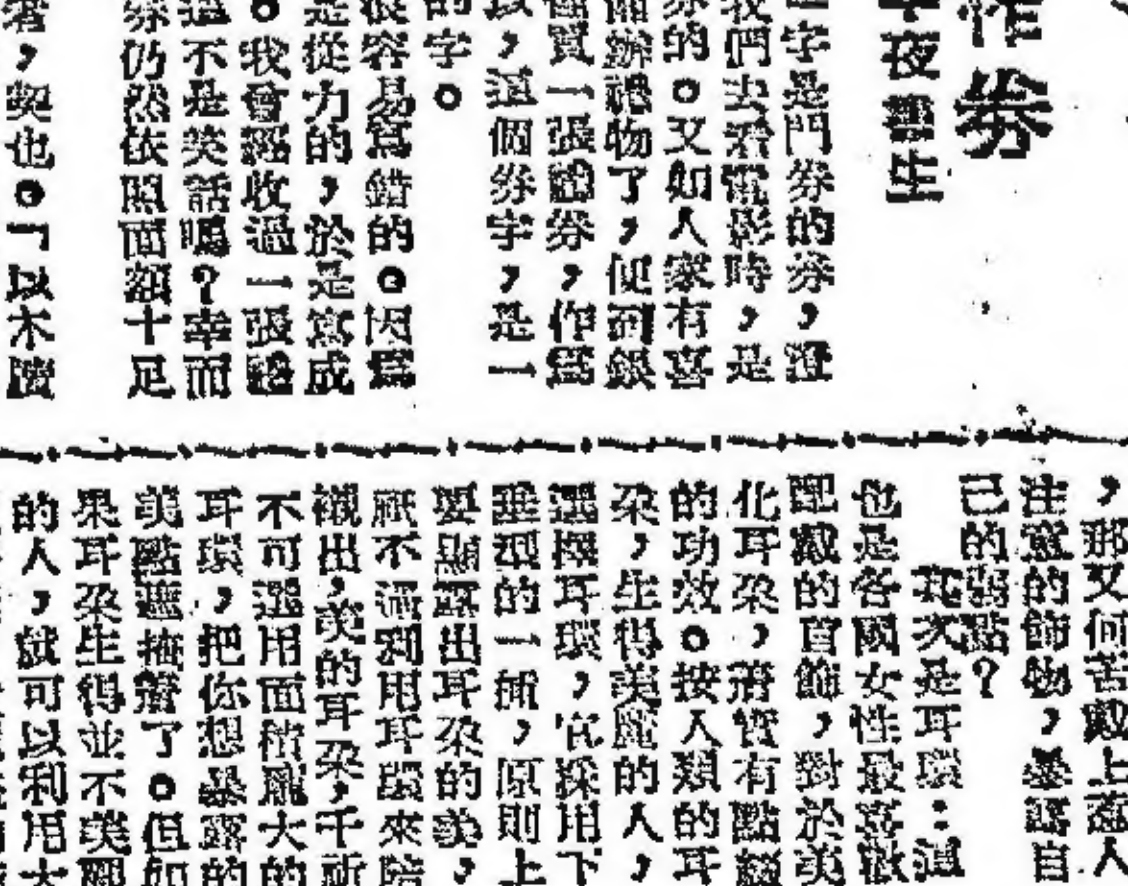 作券
夜 生
字是門券的券，證
我們去看電影時，是
券的。又如人家有喜
辦禮物了，便到銀
買一張禮券，作爲
，這個券字，是一
的字。
很容易寫錯的。因爲
是從力的，於是寫成
。我曾經收過一張
這不是笑話嗎？幸而
券仍然依照面額十足
，契也。「以木牘
，那又何苦戴上惹人
注意的飾物，暴露自
己的弱點？
其次是耳環：這
也是各國女性最喜歡
配戴的首飾，對於美
化耳朵，着實有點綴
的功效。按人類的耳
朵，生得美麗的人，
選擇耳環，宜採用下
垂型的一種，原則上
要顯露出耳朵的美，
祇不過利用耳環來陪
襯出，美的耳朵，千祈
不可選用面積龐大的
耳環，把你想暴露的
美點遮掩着了。但如
果耳朵生得並不美麗
的人，就可以利用大